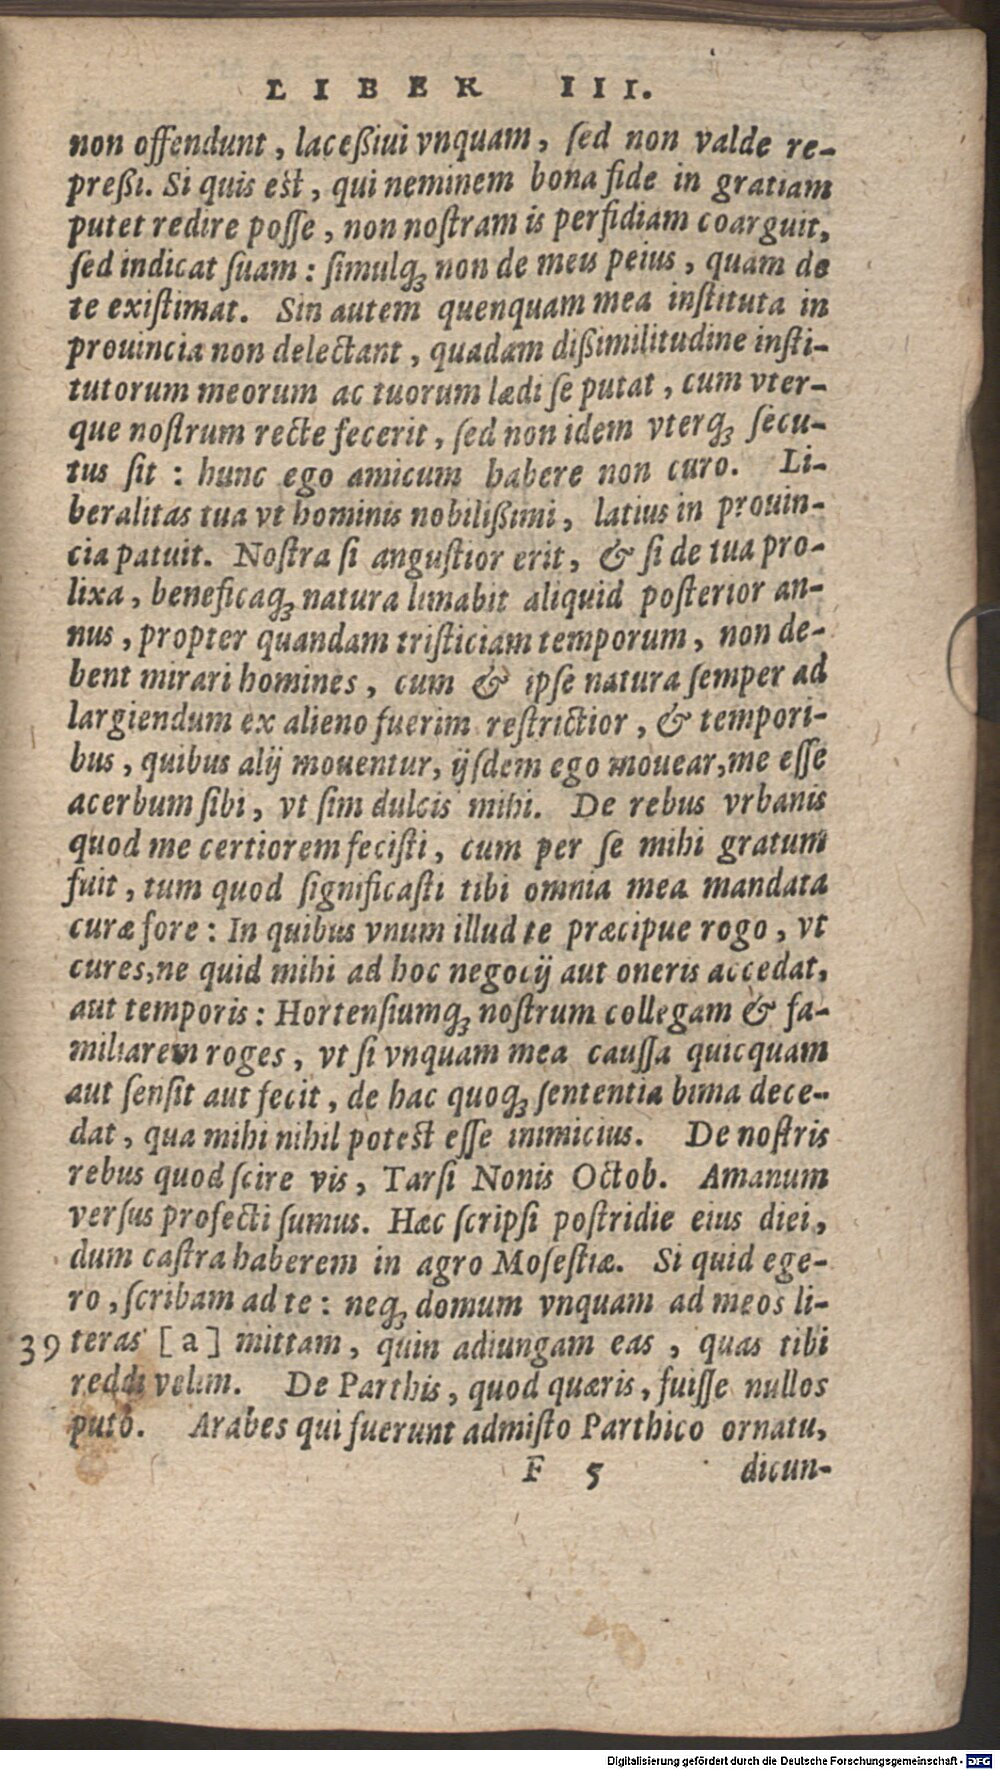 LIBER III.
non offendunt, laceßiui vnquam, sed non valde re-
preßi. Si quis est, qui neminem bona fide in gratiam
putet redire posse, non nostram is perfidiam coarguit,
sed indicat suam: simulq́; non de meu peius, quam de
te existimat. Sin autem quenquam mea instituta in
prouincia non delectant, quadam dißimilitudine insti-
tutorum meorum ac tuorum lædi se putat, cum vter-
que nostrum recte fecerit, sed non idem vterq; secu-
tus sit: hunc ego amicum habere non curo. Li-
beralitas tua vt hominis nobilißimi, latius in prouin-
cia patuit. Nostra si angustior erit, & si de tua pro-
lixa, beneficaq; natura limabit aliquid posterior an-
nus, propter quandam tristiciam temporum, non de-
bent mirari homines, cum & ipse natura semper ad
largiendum ex alieno fuerim restrictior, & tempori-
bus, quibus alij mouentur, ijsdem ego mouear, me esse
acerbum sibi, vt sim dulcis mihi. De rebus vrbanis
quod me certiorem fecisti, cum per se mihi gratum
fuit, tum quod significasti tibi omnia mea mandata
curæ fore: In quibus vnum illud te præcipue rogo, vt
cures, ne quid mihi ad hoc negocij aut oneris accedat,
aut temporis: Hortensiumq; nostrum collegam & fa-
miliarem roges, vt si vnquam mea caussa quicquam
aut sensit aut fecit, de hac quoq; sententia bima dece-
dat, qua mihi nihil potest esse inimicius. De nostris
rebus quod scire vis, Tarsi Nonis Octob. Amanum
versus profecti sumus. Hæc scripsi postridie eius diei,
dum castra haberem in agro Mosestiæ. Si quid ege-
ro, scribam ad te: neq; domum vnquam ad meos li-
39 teras [a] mittam, quin adiungam eas, quas tibi
reddi velim. De Parthis, quod quæris, fuisse nullos
puto. Arabes qui fuerunt admisto Parthico ornatu,
F 5 dicun-
Digitalisierung gefördert durch die Deutsche Forschungsgemeinschaft - DFG